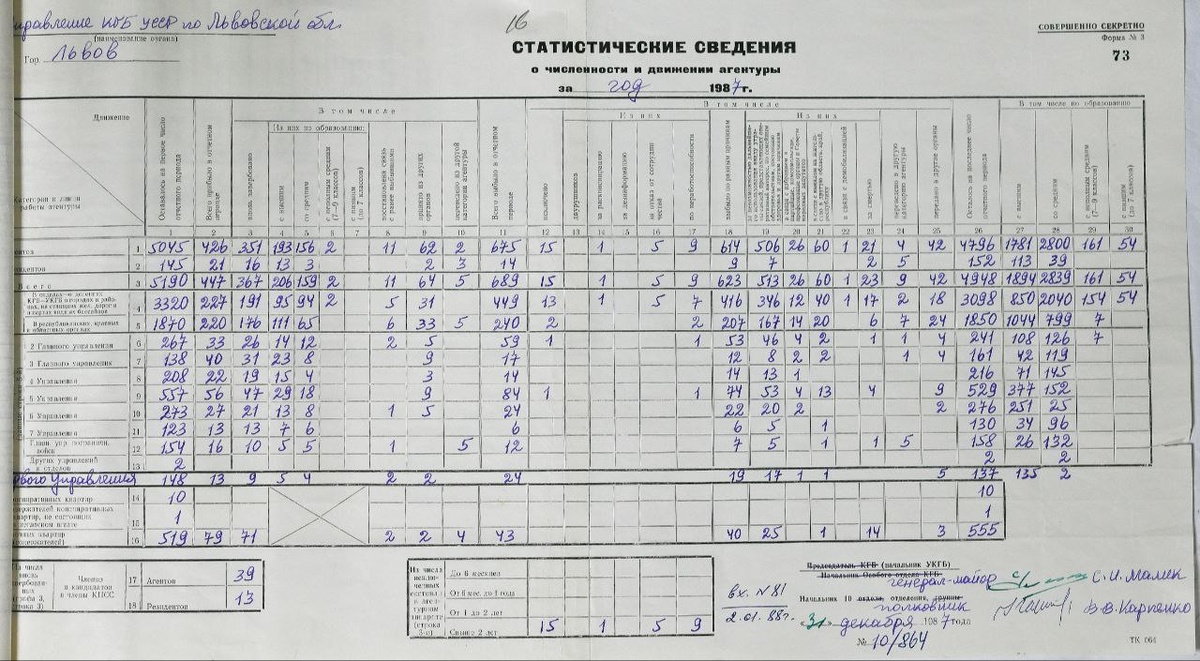 Управление КГБ УССР по Львовской обл.
(наименование органа)
Гор. Львов
16
СОВЕРШЕННО СЕКРЕТНО
Форма № 3
73
СТАТИСТИЧЕСКИЕ СВЕДЕНИЯ
о численности и движении агентуры
за год 1987 г.
Движение
Категории и линии работы агентуры
Осталось на первое число отчетного периода
Всего прибыло в отчетном периоде
В том числе
вновь завербовано
Из них по образованию:
с высшим
со средним
с неполным средним (7—9 классов)
с низшим (до 7 классов)
восстановлена связь с ранее выбывшими
прибыло из других органов
переведено из другой категории агентуры
Всего выбыло в отчетном периоде
В том числе
исключено
Из них
двурушников
за расшифровку
за дезинформацию
за отказ от сотрудничества
по неработоспособности
выбыло по разным причинам
Из них
в связи с демобилизацией
за смертью
переведено в другую категорию агентуры
передано в другие органы
Осталось на последнее число отчетного периода
В том числе по образованию
с высшим
со средним
с неполным средним (7—9 классов)
с низшим (до 7 классов)
1 2 3 4 5 6 7 8 9 10 11 12 13 14 15 16 17 18 19 20 21 22 23 24 25 26 27 28 29 30
1 5045 426 351 193 156 2 11 62 2 675 15 1 5 9 614 506 26 60 1 21 4 42 4796 1781 2800 161 54
2 145 21 16 13 3 2 3 14 9 7 2 5 152 113 39
Всего 3 5190 447 367 206 159 2 11 64 5 689 15 1 5 9 623 513 26 60 1 23 9 42 4948 1894 2839 161 54
4 3320 227 191 95 94 2 5 31 449 13 1 5 7 416 346 12 40 1 17 2 18 3098 850 2040 154 54
В республиканских, краевых и областных органах 5 1870 220 176 111 65 6 33 5 240 2 2 207 167 14 20 6 7 24 1850 1044 799 7
2 Главного управления 6 267 33 26 14 12 2 5 59 1 1 53 46 4 2 1 1 4 241 108 126 7
3 Главного управления 7 138 40 31 23 8 9 17 12 8 2 2 1 4 161 42 119
4 Управления 8 208 22 19 15 4 3 14 14 13 1 216 71 145
5 Управления 9 557 56 47 29 18 9 84 1 1 74 53 4 13 4 9 529 377 152
6 Управления 10 273 27 21 13 8 1 5 24 22 20 2 2 276 251 25
7 Управления 11 123 13 13 7 6 6 6 5 1 130 34 96
Глав. упр. погранич. войск 12 154 16 10 5 5 1 5 12 7 5 1 1 5 158 26 132
Других управлений и отделов 13 2 2 2
Первого управления 148 13 9 5 4 2 2 24 19 17 1 1 5 137 135 2
14 10 10
15 1 1
16 519 79 71 2 2 4 43 40 25 1 14 3 555
Членов и кандидатов в члены КПСС
17 Агентов 39
18 Резидентов 13
Из числа исключенных состояли в агентурном аппарате (строка 3-я)
До 6 месяцев
От 6 мес. до 1 года
От 1 до 2 лет
Свыше 2 лет 15 1 5 9
вх. № 81
2.01.88г.
Председатель КГБ (начальник УКГБ)
Начальник Особого отдела КГБ
генерал-майор С.И. Малик
Начальник 10 отдела, отделения, группы
полковник В.В. Карпенко
31 декабря 1987 года
№ 10/864
ТК 064